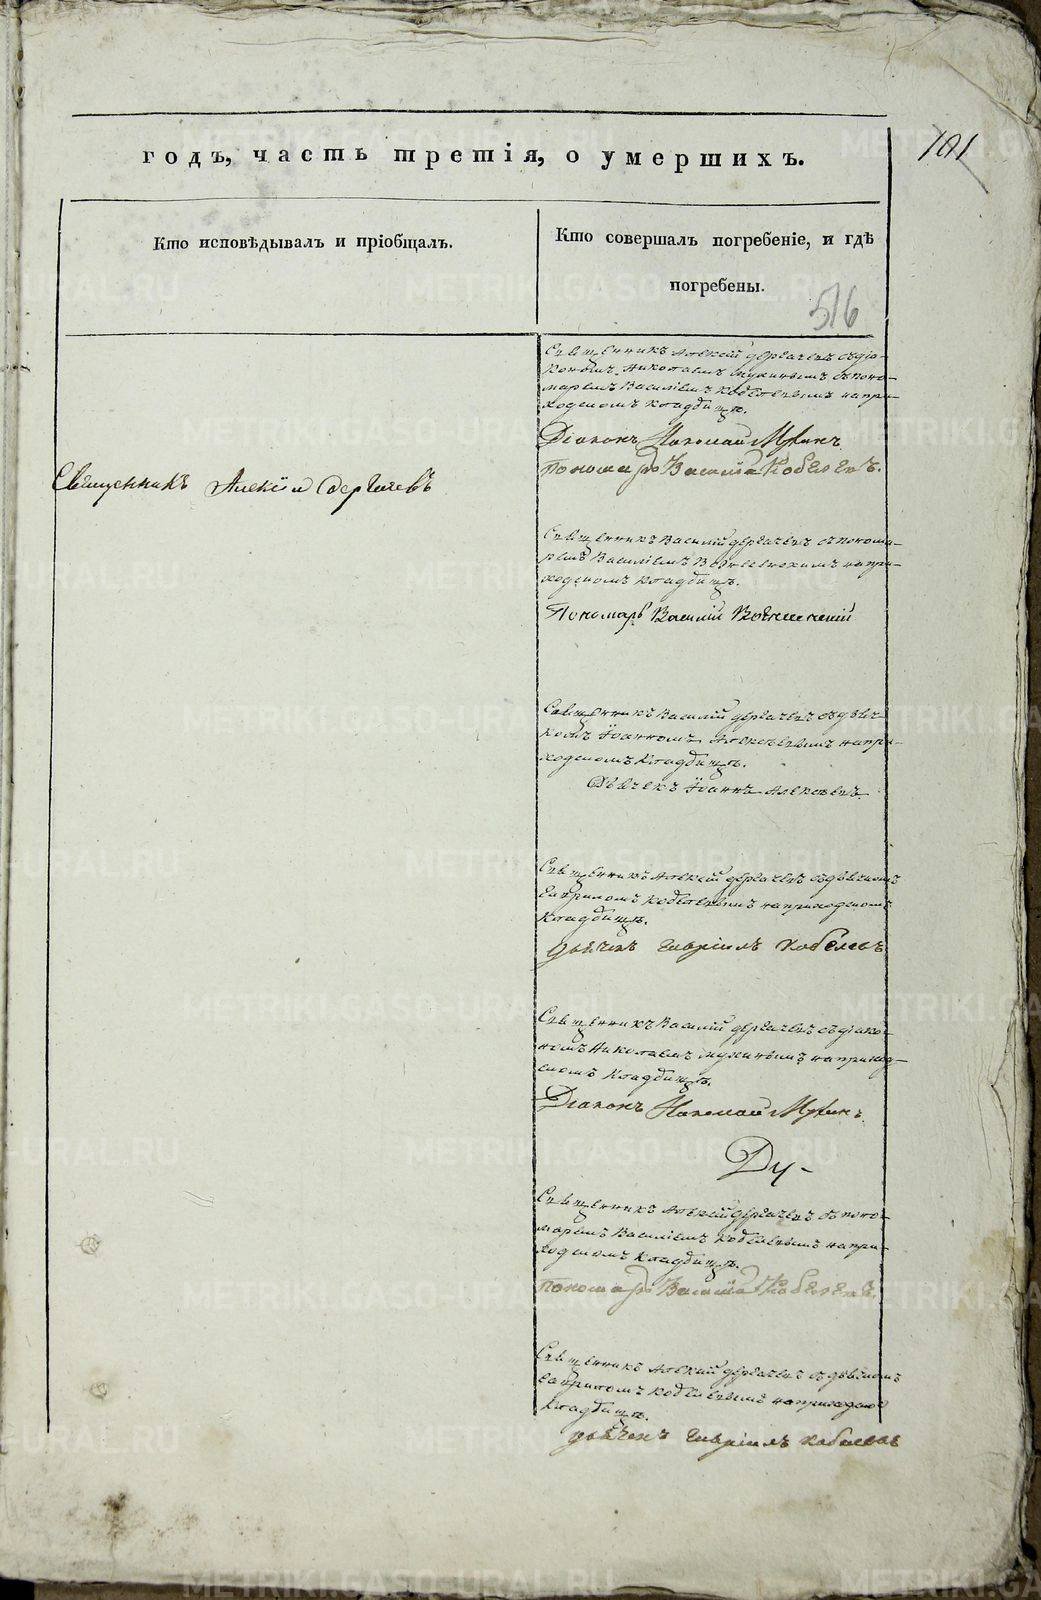 годъ, часть третія, о умершихъ.
101
Кто исповѣдывалъ и пріобщалъ.
Кто совершалъ погребеніе, и гдѣ
погребены.
516
Священникъ Алексій Дергачевъ съ діа-
кономъ Николаемъ Мухинымъ съ поно-
маремъ Василіемъ Кобелевымъ на при-
ходскомъ кладбищѣ.
Діаконъ Николай Мухинъ
Пономарь Василій Кобелевъ.
Священникъ Алексій Дергачевъ
Священникъ Василій Дергачевъ съ понома-
ремъ Василіемъ Вознесенскимъ на при-
ходскомъ кладбищѣ.
Пономарь Василій Вознесенскій
Священникъ Василій Дергачевъ съ дьяч-
комъ Іоанномъ Алексѣевымъ на при-
ходскомъ кладбищѣ.
Дьячекъ Іоаннъ Алексѣевъ.
Священникъ Алексій Дергачевъ съ дьячкомъ
Гавриломъ Кобелевымъ на приходскомъ
кладбищѣ.
дьячекъ Гавріилъ Кобелевъ
Священникъ Василій Дергачевъ съ діако-
номъ Николаемъ Мухинымъ на приход-
скомъ кладбищѣ.
Діаконъ Николай Мухинъ.
Ду-
Священникъ Алексій Дергачевъ съ поно-
маремъ Василіемъ Кобелевымъ на при-
ходскомъ кладбищѣ.
Пономарь Василій Кобелевъ.
Священникъ Алексій Дергачевъ съ дьячкомъ
Гавриломъ Кобелевымъ на приходском
кладбищѣ.
дьячекъ Гавріилъ Кобелевъ
METRIKI.GASO-URAL.RU